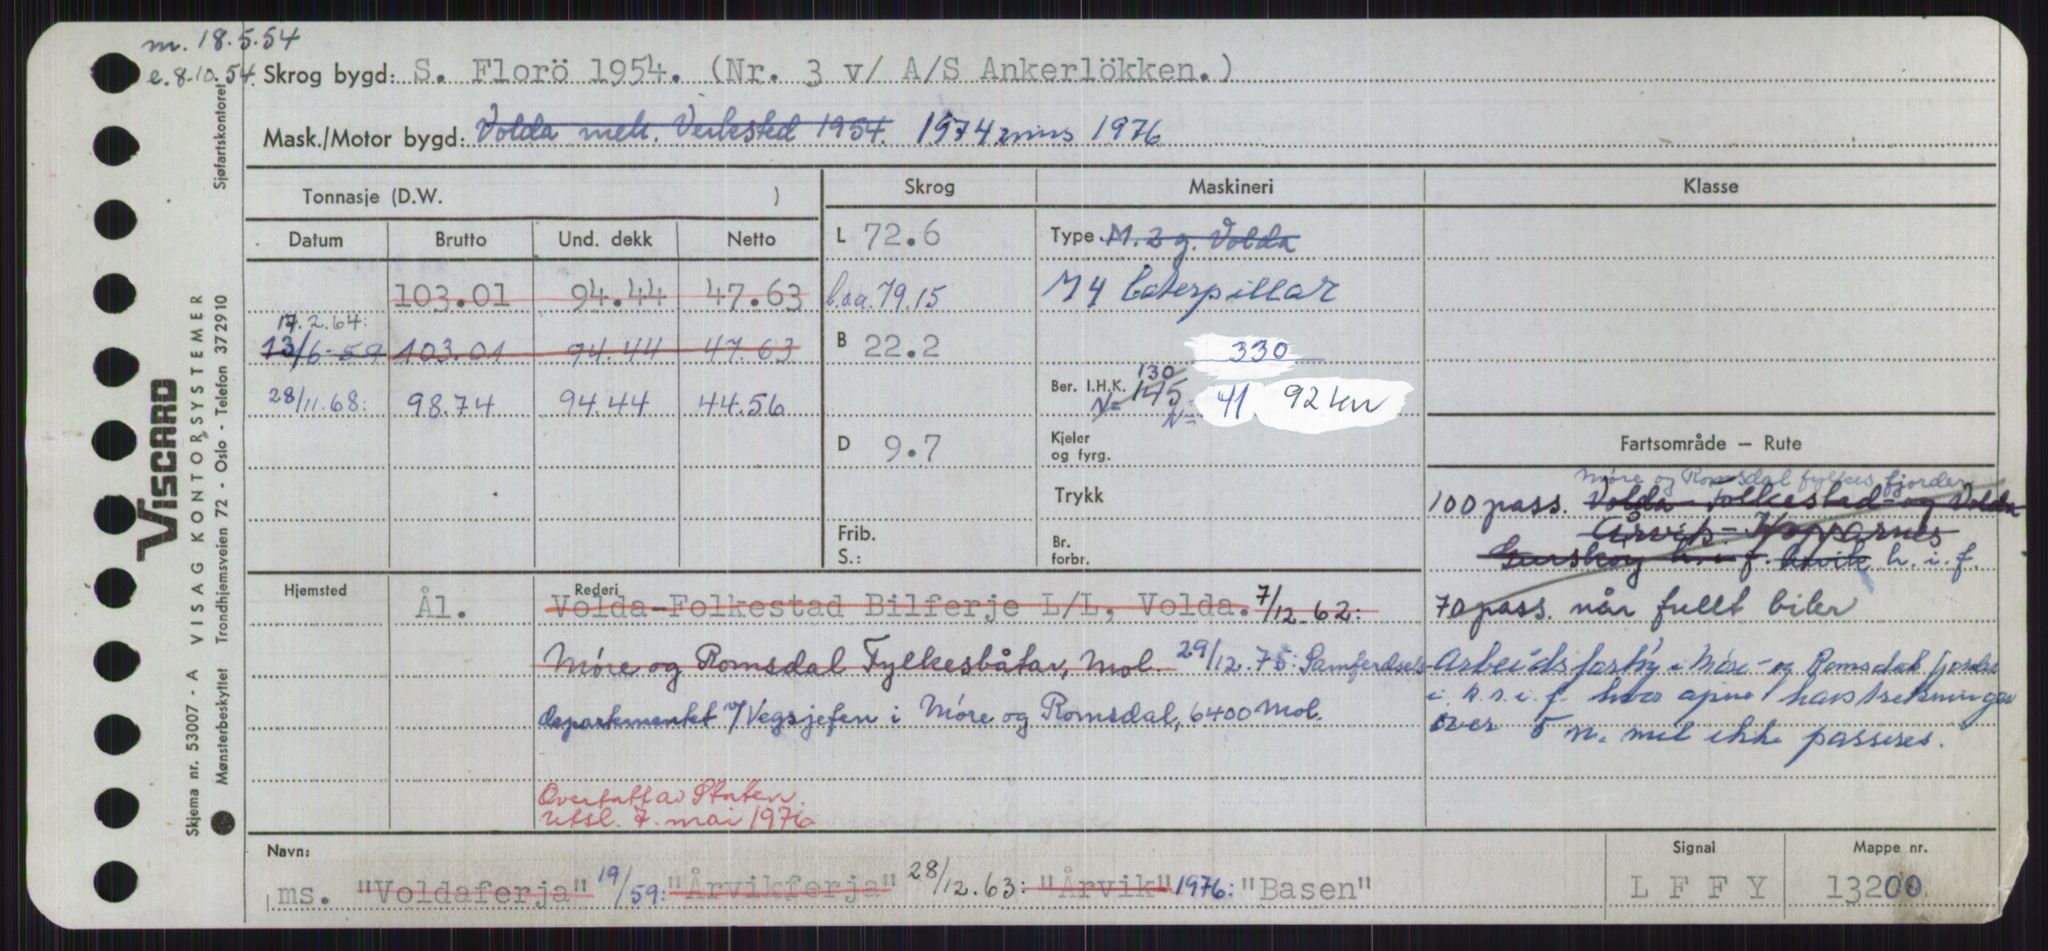 m. 18.5.54
e. 8.10.54.
Skrog bygd: S. Florö 1954. (Nr. 3 v/ A/S Ankerlökken.)
Mask./Motor bygd: Volda mek. Verksted 1954. 1974 1976
Tonnasje (D.W. )
Skrog
Maskineri
Klasse
Datum Brutto Und. dekk Netto
L 72.6
Type M. 2 g. Volda
103.01 94.44 47.63
l.oa. 79.15
M 4 Caterpillar
17.2.64:
13/6-59 103.01 94.44 47.63
B 22.2
330
130
Ber. I.H.K. 145
28/11.68: 98.74 94.44 44.56
N= N= 41 92 kw
D 9.7
Kjeler
og fyrg.
Fartsområde – Rute
Trykk
Møre og Romsdal fylkes fjorder
100 pass. Volda - Folkestad - og Volda
Årvik - Koparnes
Frib.
S.:
Br.
forbr.
Gurskøy h.i.f. Årvik h.i.f.
Hjemsted
Ål.
Rederi
Volda-Folkestad Bilferje L/L, Volda. 7/12.62:
70 pass. når fullt biler
Møre og Romsdal Fylkesbåtar, Mol. 29/12.75: Samferdsels-
departementet v/Vegsjefen i Møre og Romsdal, 6400 Mol.
Arbeidsfartøy i Møre- og Romsdal fjorder
i. h.s.i.f. hvor åpne havstrekninger
over 5 n. mil ikke passeres.
Overtatt av Staten.
Utsl. 7. mai 1976
Navn:
ms. "Voldaferja" 19/59: "Årvikferja" 28/12.63: "Årvik" 1976: "Basen"
Signal
L F F Y
Mappe nr.
13200
VISCARD
Skjema nr. 53007 - A VISAG KONTORSYSTEMER
Mønsterbeskyttet Trondhjemsveien 72 - Oslo - Telefon 372910
Sjøfartskontoret